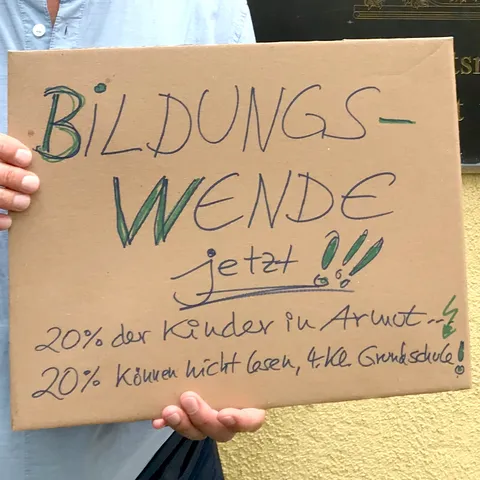 BILDUNGS-
WENDE
jetzt!!!
20% der Kinder in Armut...
20% können nicht lesen, 4. Kl. Grundschule!